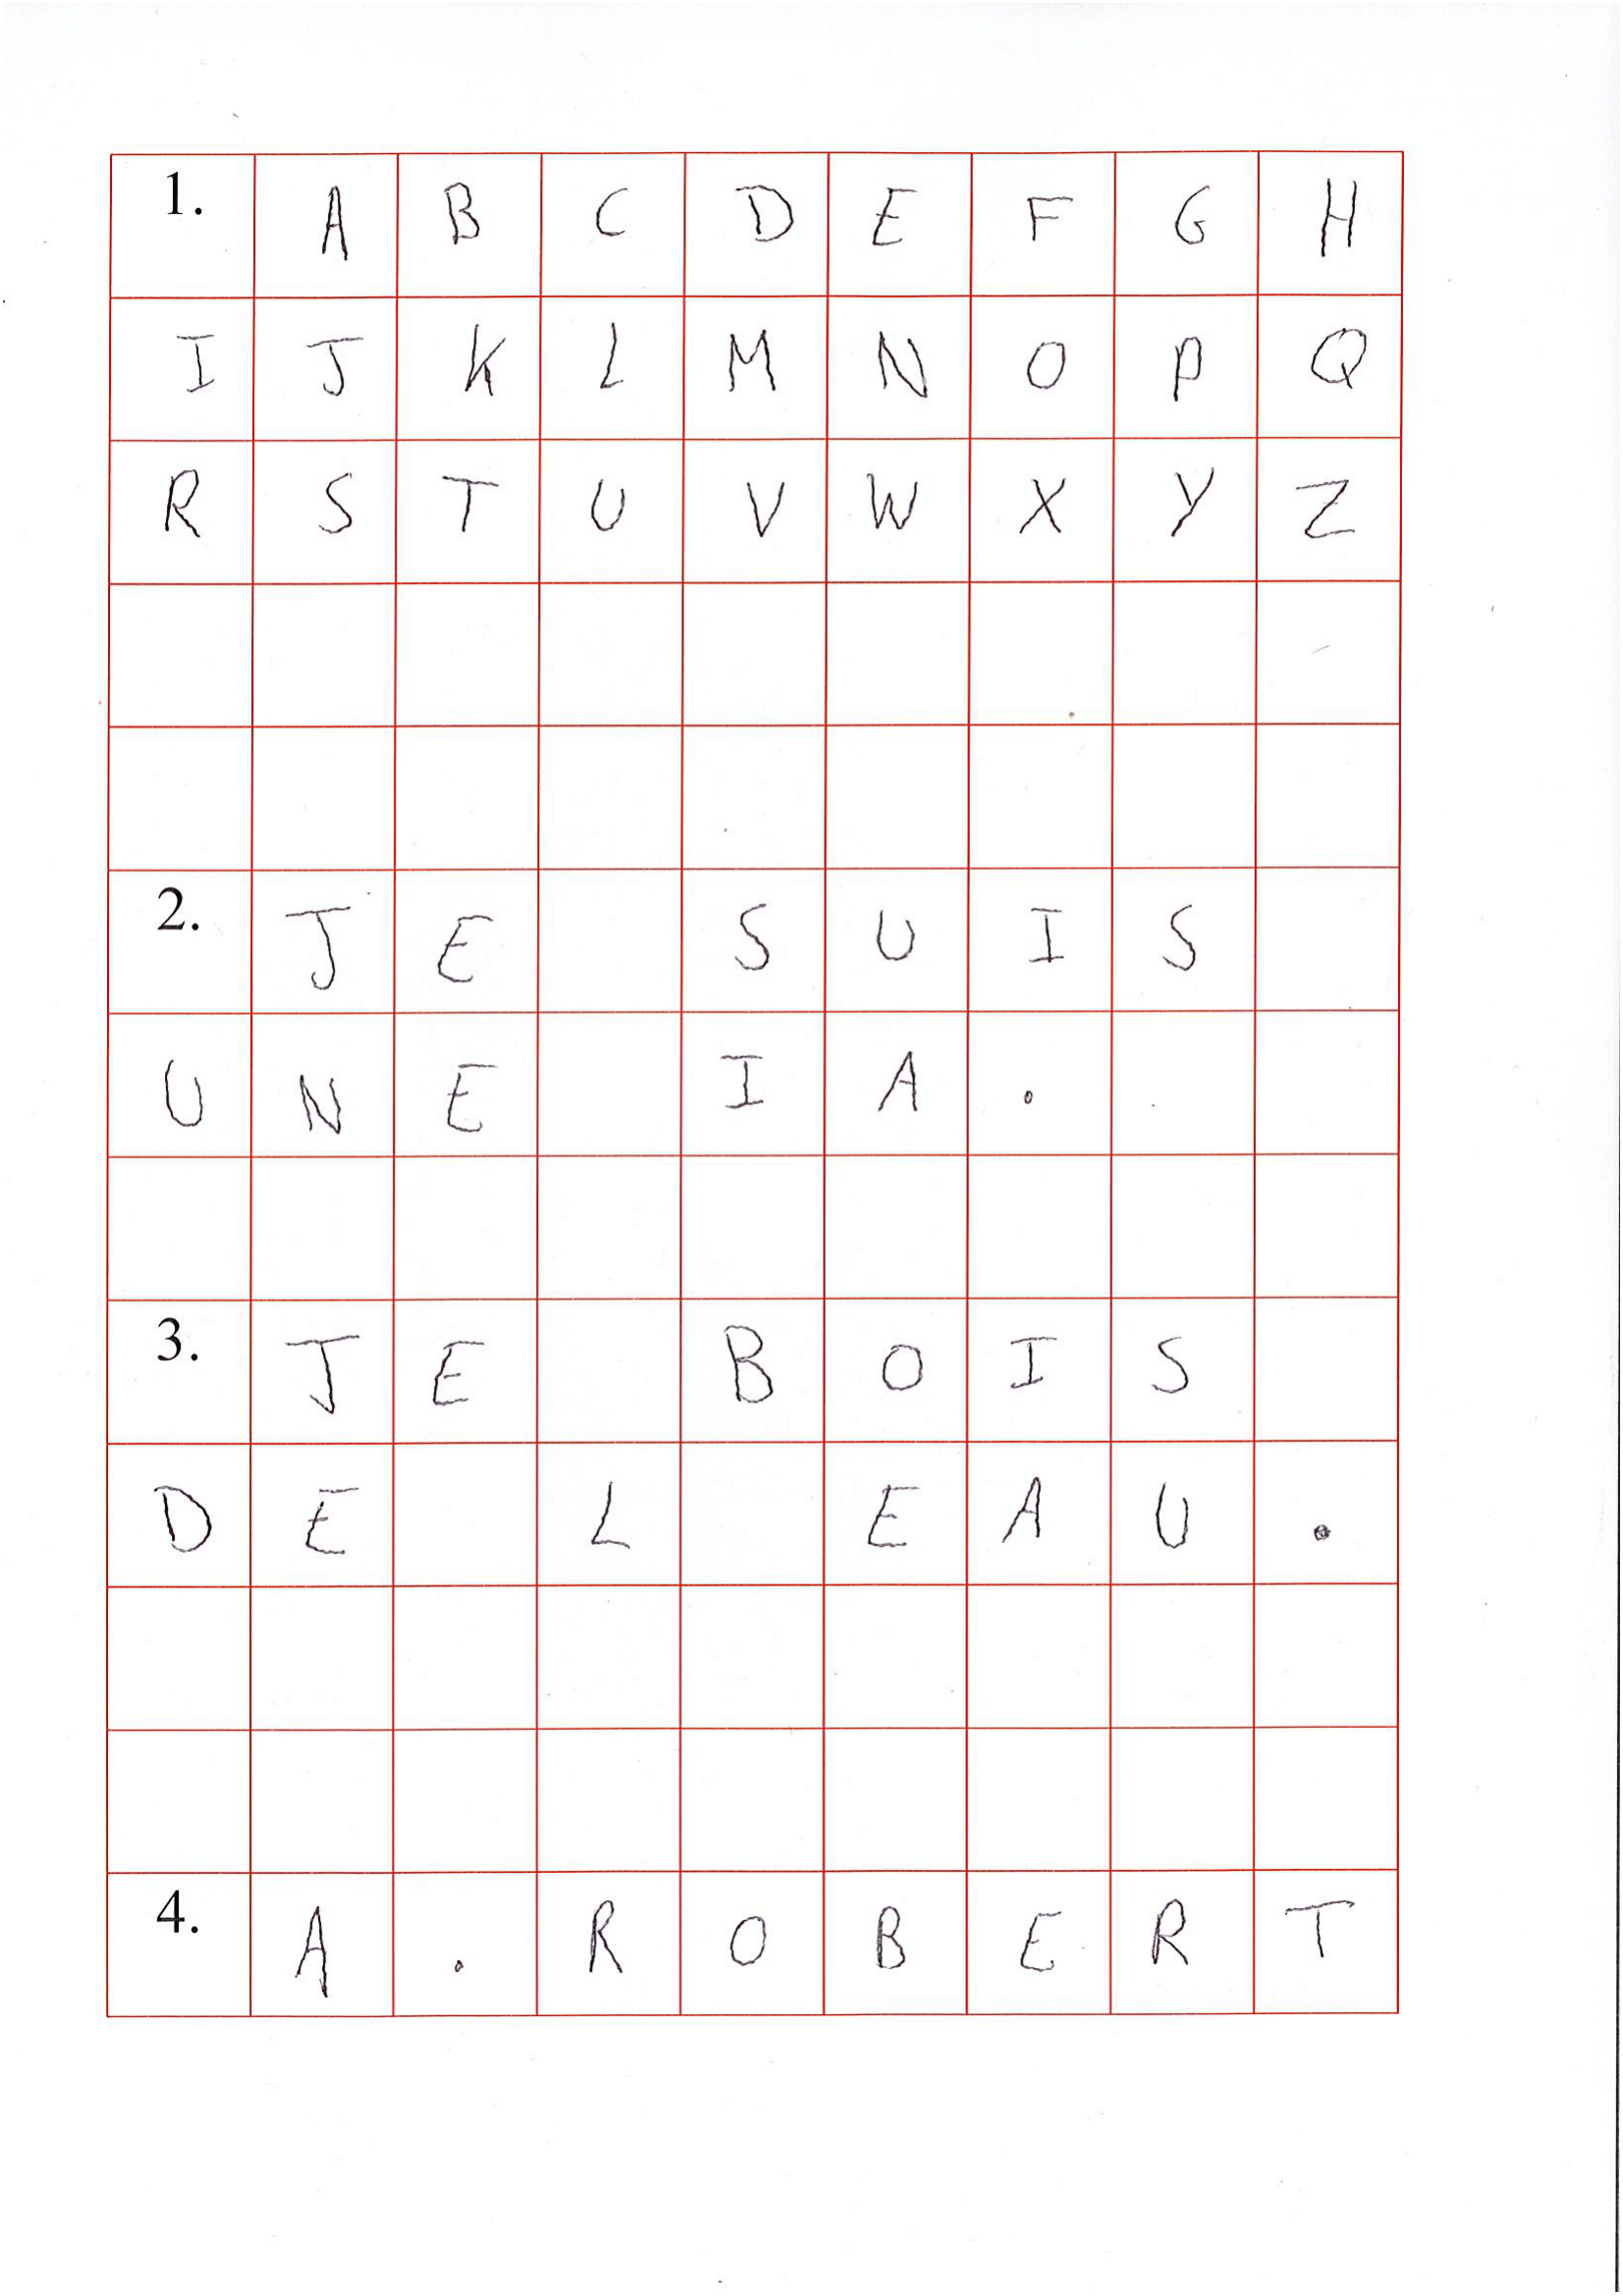 1. A B C D E F G H
I J K L M N O P Q
R S T U V W X Y Z
2. JE SUIS
UNE IA.
3. JE BOIS
DE L EAU.
4. A.ROBERT